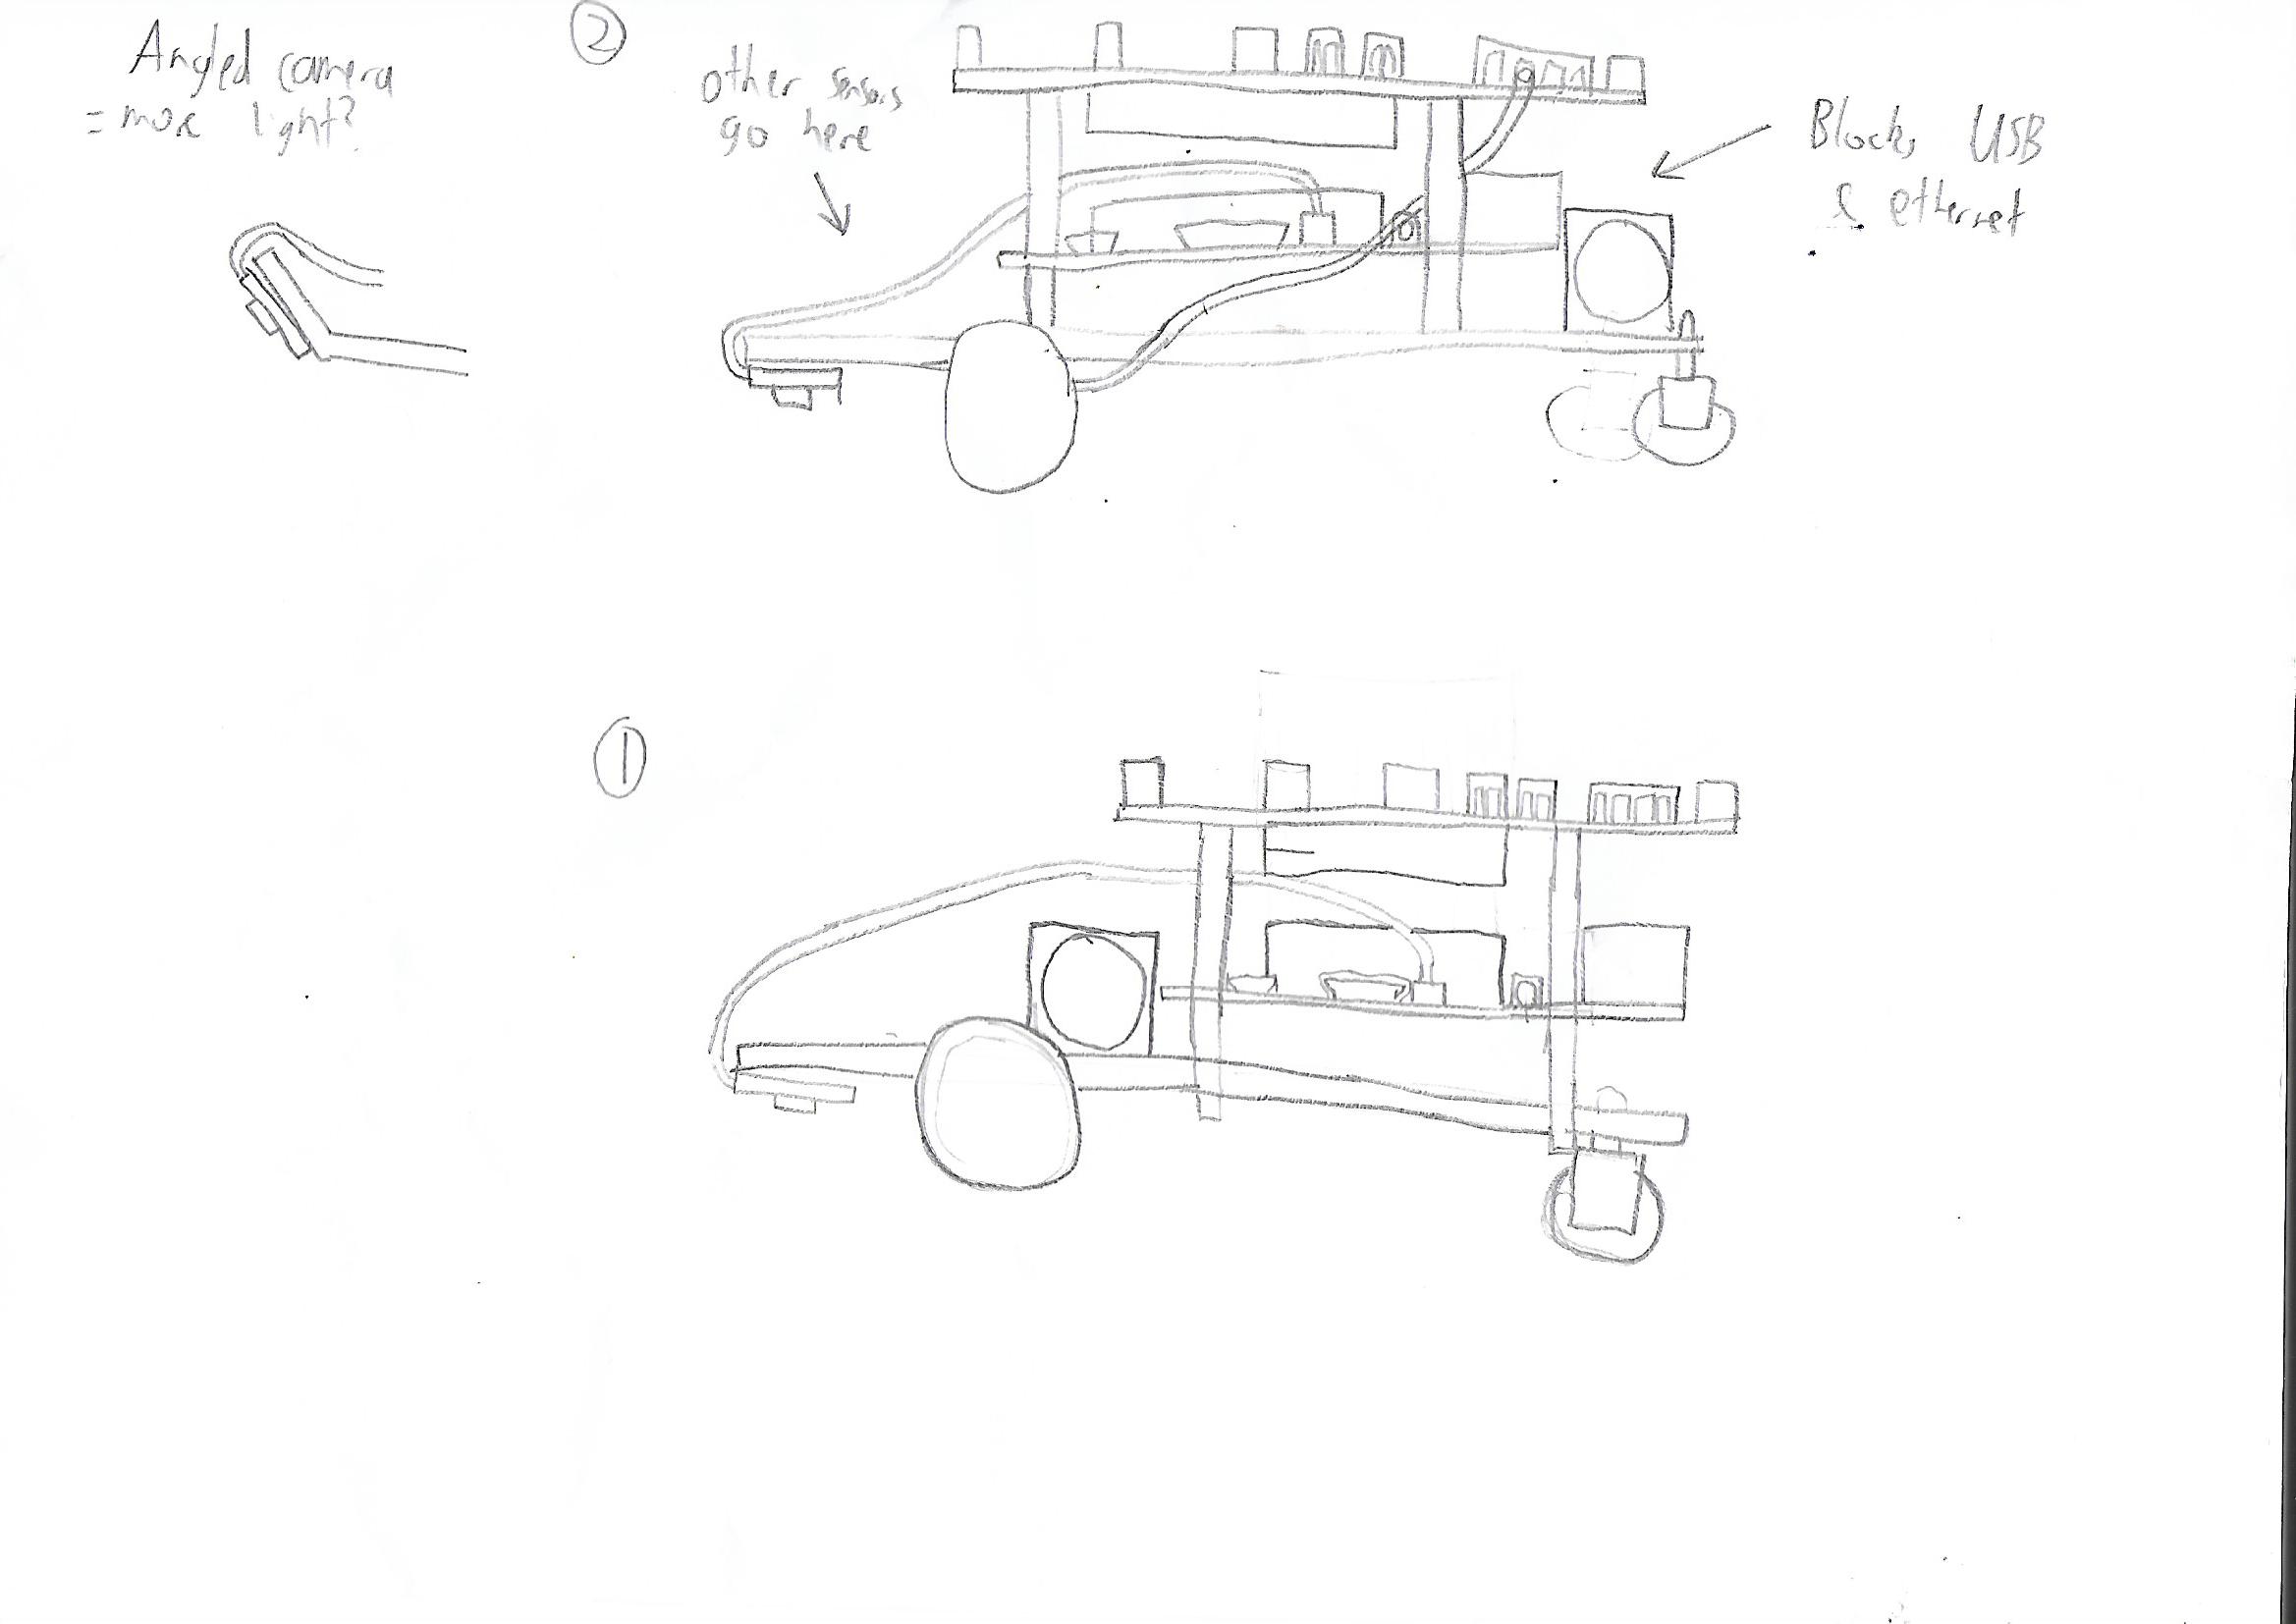 Angled camera
= more light?
②
other sensors
go here
Blocks USB
& ethernet
①